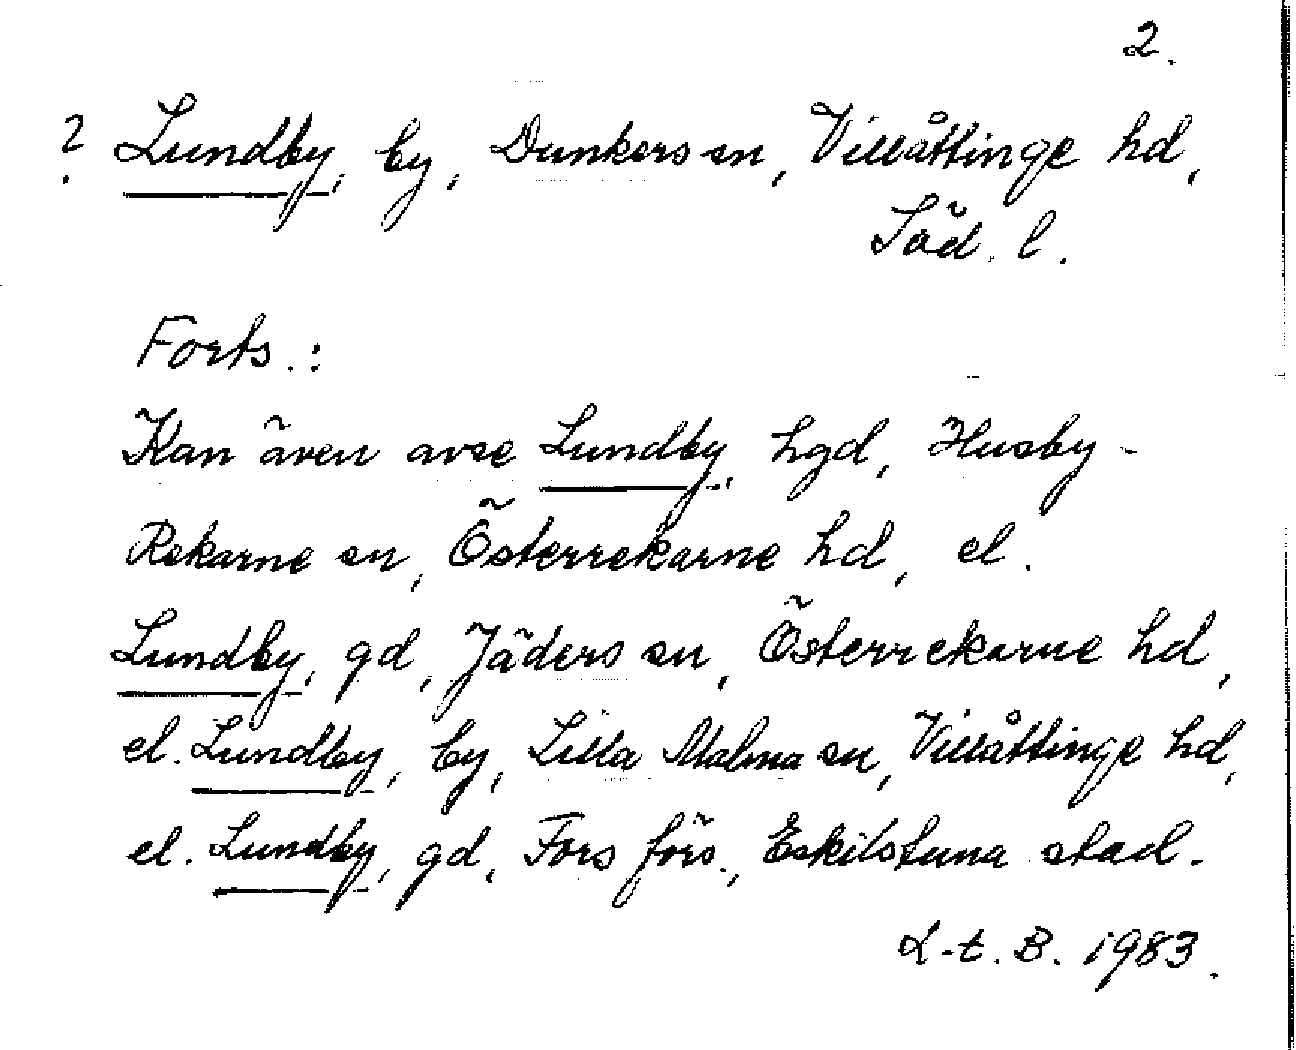 2.
? Lundby, by, Dunkers sn, Villåttinge hd,
Söd. l.
Forts.:
Kan även avse Lundby, hgd, Husby-
Rekarne sn, Österrekarne hd, el.
Lundby, gd, Jäders sn, Österrekarne hd,
el. Lundby, by, Lilla Malma sn, Villåttinge hd,
el. Lundby, gd, Fors förs., Eskilstuna stad.
L-t. B. 1983.